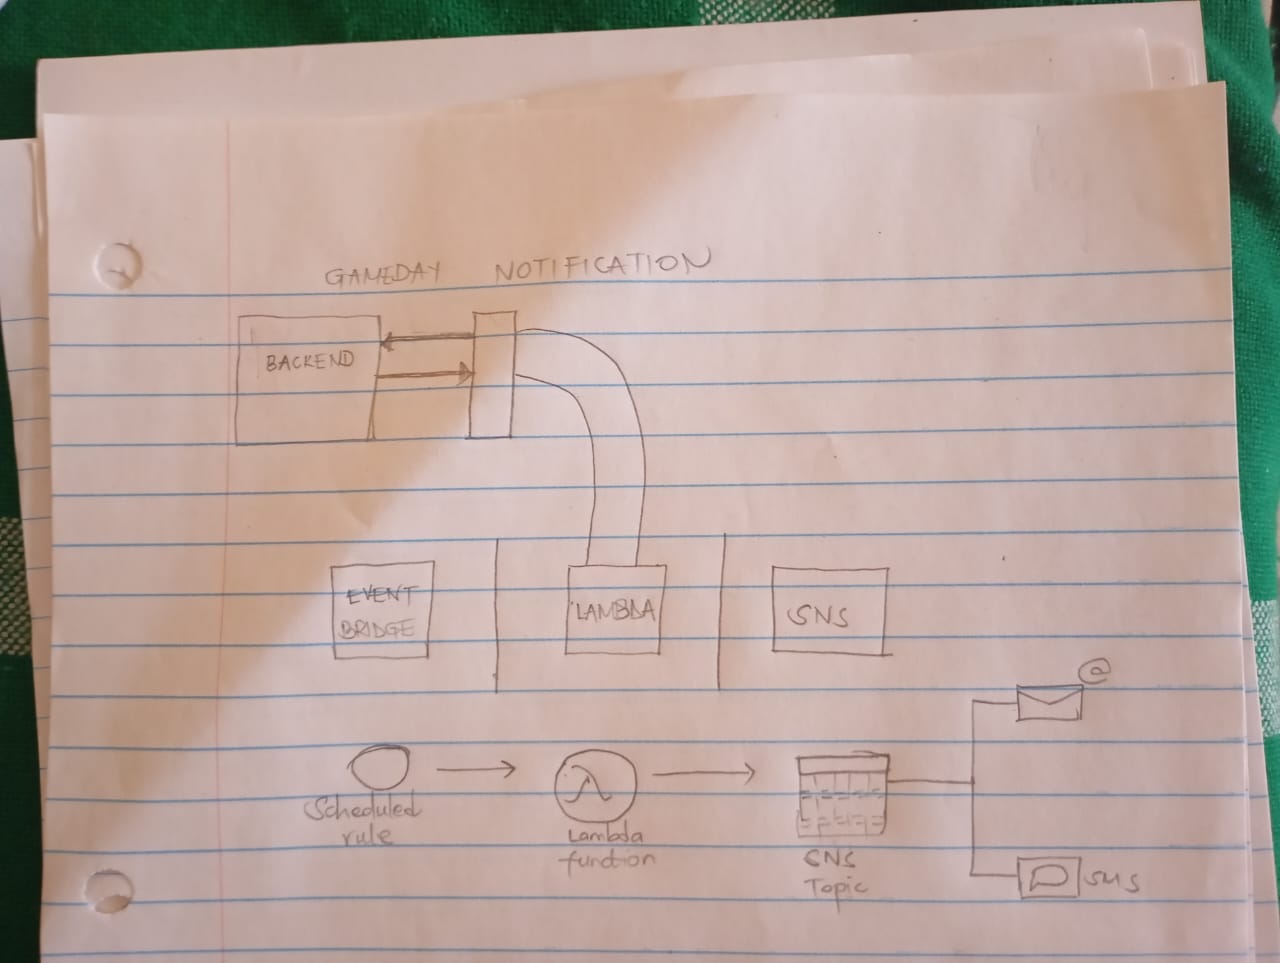 GAMEDAY NOTIFICATION
BACKEND
EVENT
BRIDGE
LAMBDA
SNS
@
Scheduled
rule
λ
Lambda
function
SNS
Topic
SMS